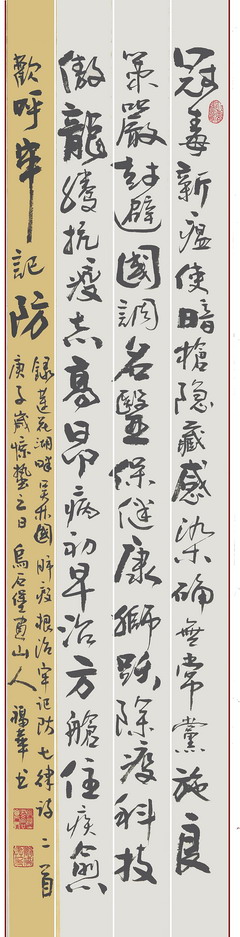 冠毒新瘟使暗槍隐藏感染确無常黨施良
策嚴封避國調名醫保健康獅躍除疫科技
傲龍騰抗疫志高昂病初早治方艙住疾愈
歡呼牢記防
錄蓮花湖畔吴國肺疫根治牢記防七律詩二首
庚子歲惊蟄之日烏石堡山人福華书